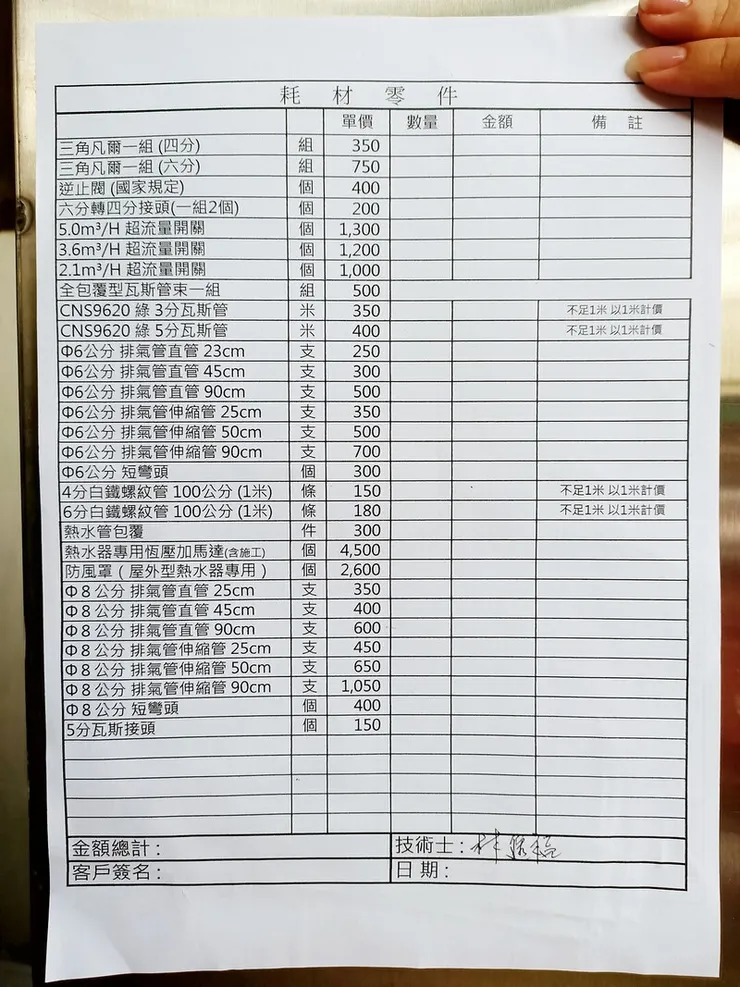 耗材零件
單價 數量 金額 備註
三角凡爾一組 (四分) 組 350
三角凡爾一組 (六分) 組 750
逆止閥 (國家規定) 個 400
六分轉四分接頭(一組2個) 個 200
5.0m³/H 超流量開關 個 1,300
3.6m³/H 超流量開關 個 1,200
2.1m³/H 超流量開關 個 1,000
全包覆型瓦斯管束一組 組 500
CNS9620 綠 3分瓦斯管 米 350 不足1米 以1米計價
CNS9620 綠 5分瓦斯管 米 400 不足1米 以1米計價
Φ6公分 排氣管直管 23cm 支 250
Φ6公分 排氣管直管 45cm 支 300
Φ6公分 排氣管直管 90cm 支 500
Φ6公分 排氣管伸縮管 25cm 支 350
Φ6公分 排氣管伸縮管 50cm 支 500
Φ6公分 排氣管伸縮管 90cm 支 700
Φ6公分 短彎頭 個 300
4分白鐵螺紋管 100公分 (1米) 條 150 不足1米 以1米計價
6分白鐵螺紋管 100公分 (1米) 條 180 不足1米 以1米計價
熱水管包覆 件 300
熱水器專用恆壓加馬達(含施工) 個 4,500
防風罩 ( 屋外型熱水器專用 ) 個 2,600
Φ8公分 排氣管直管 25cm 支 350
Φ8公分 排氣管直管 45cm 支 400
Φ8公分 排氣管直管 90cm 支 600
Φ8公分 排氣管伸縮管 25cm 支 450
Φ8公分 排氣管伸縮管 50cm 支 650
Φ8公分 排氣管伸縮管 90cm 支 1,050
Φ8公分 短彎頭 個 400
5分瓦斯接頭 個 150
金額總計: 技術士:
客戶簽名: 日期: